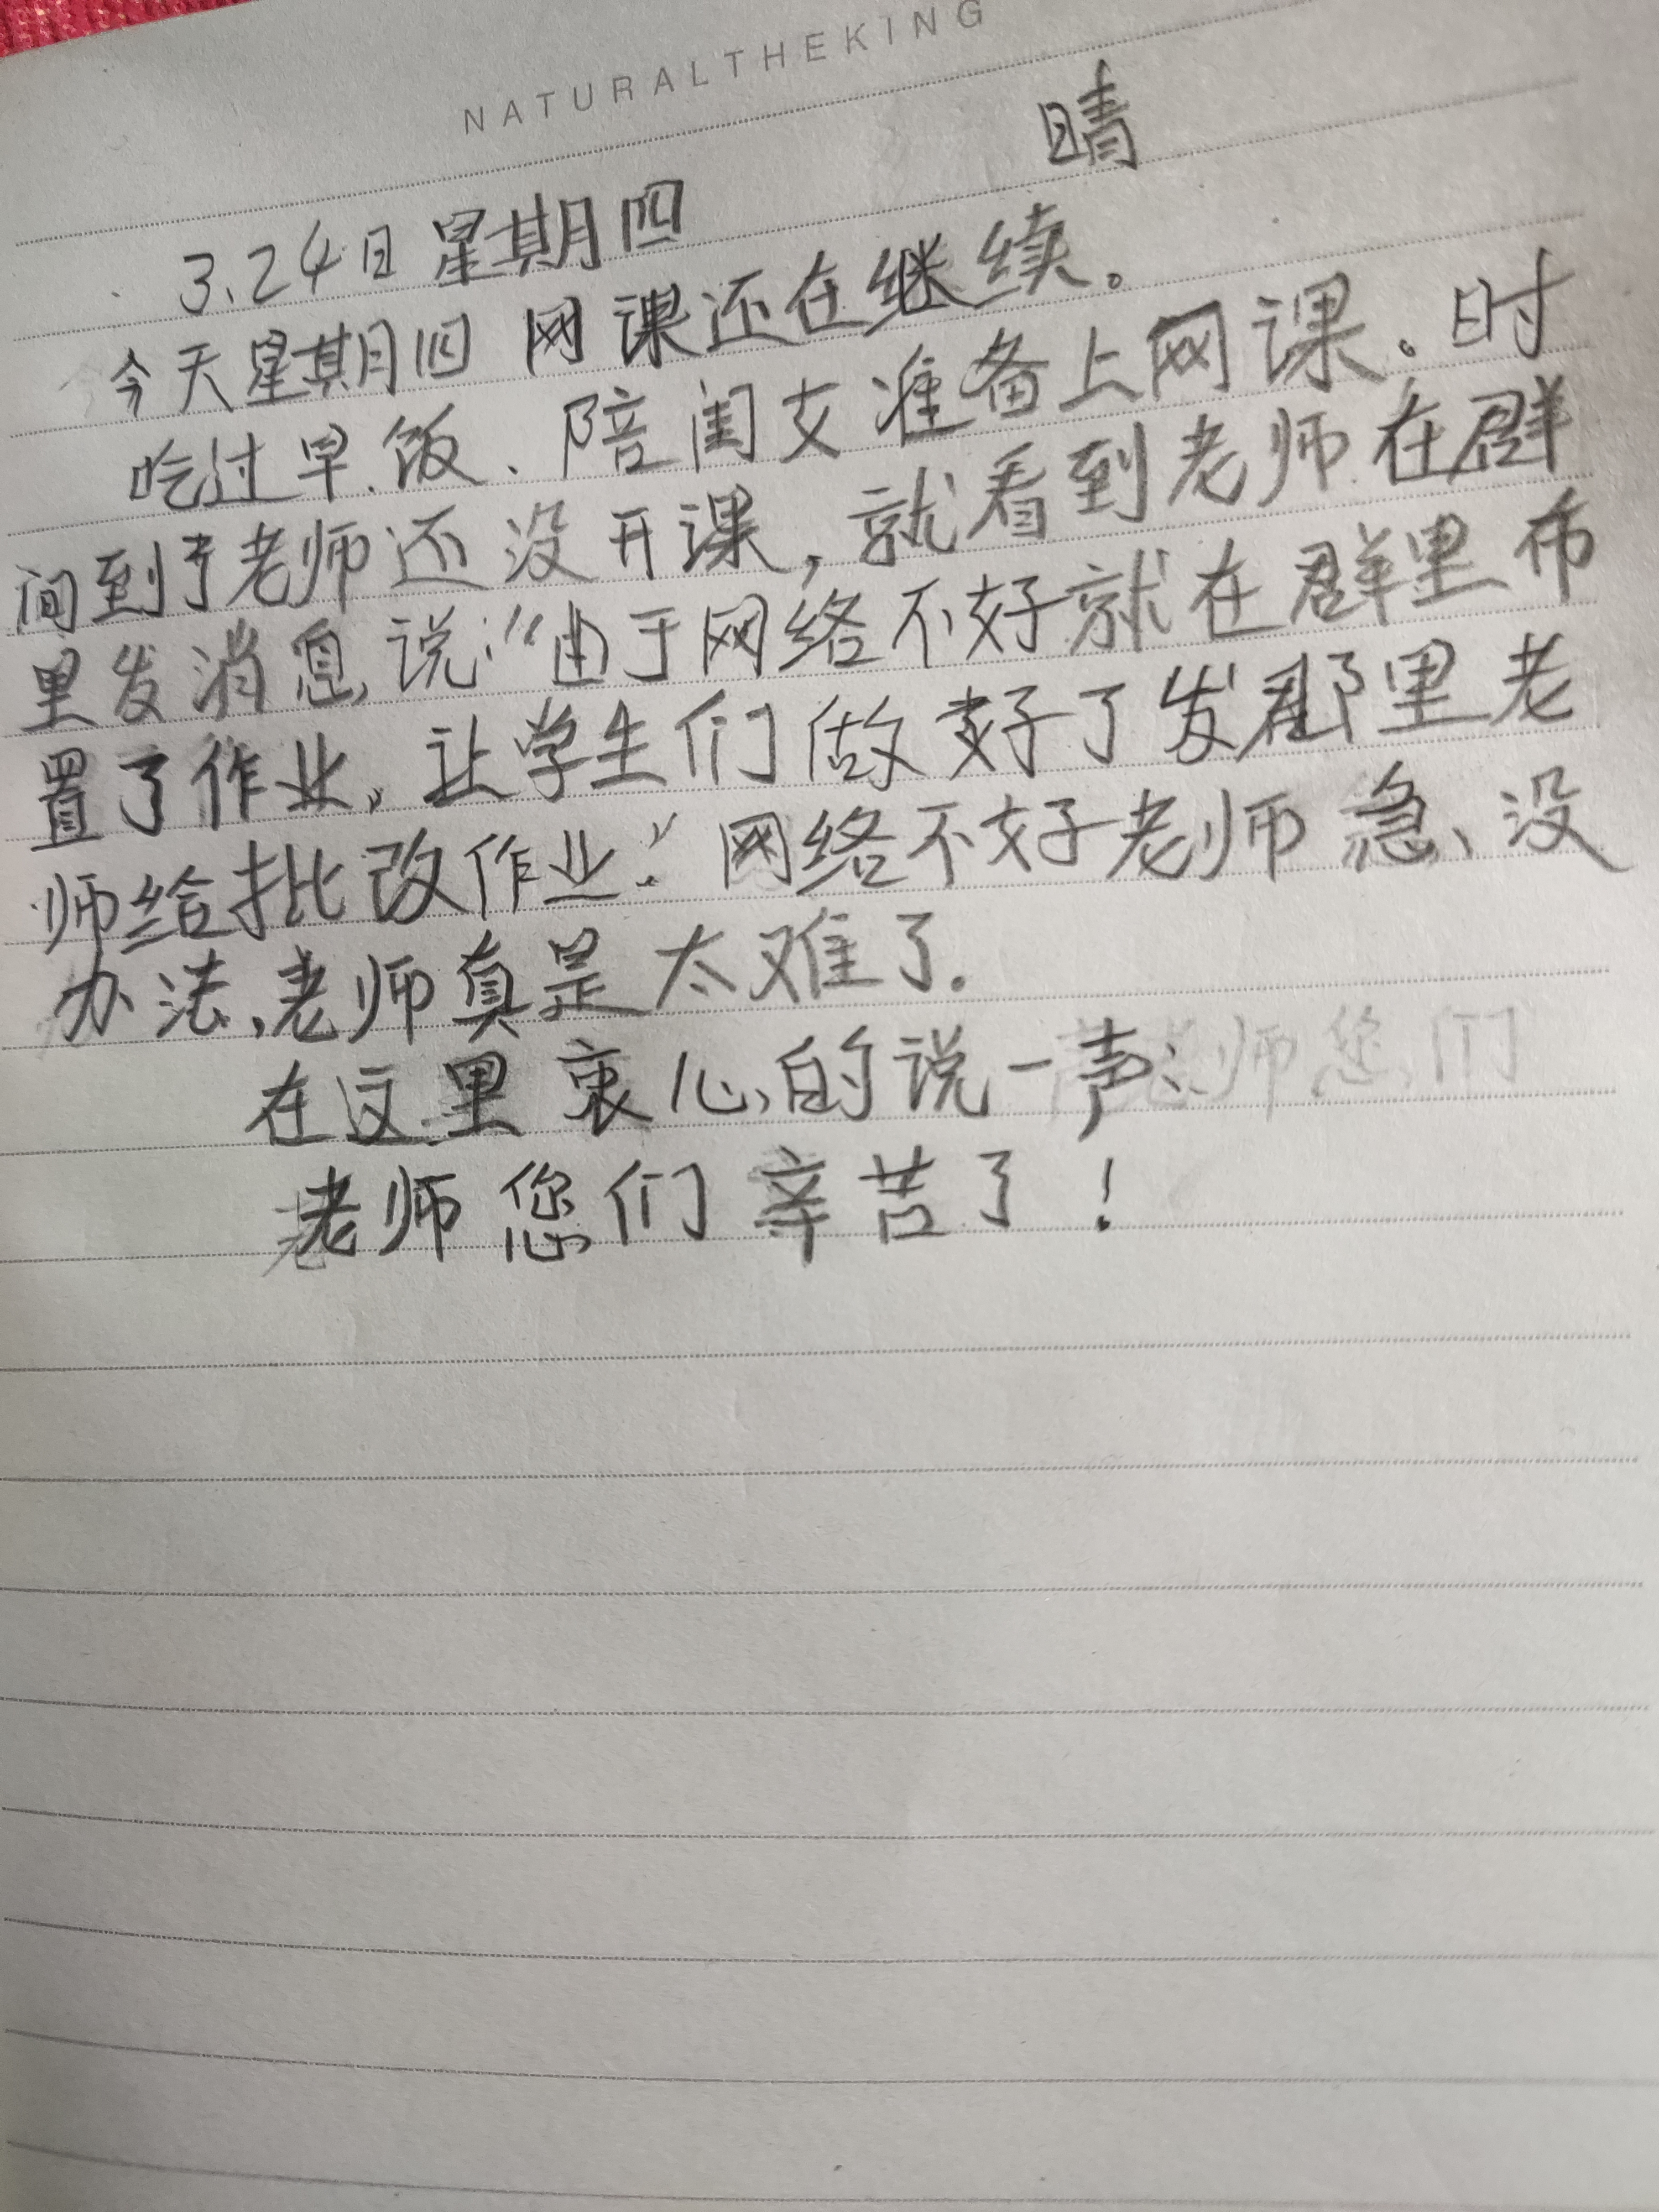 NATURALTHEKING
晴
3.24日星期四
今天星期四 网课还在继续。
吃过早饭、陪闺女准备上网课。时
间到了老师还没开课，就看到老师在群
里发消息，说：“由于网络不好就在群里布
置了作业，让学生们做好了发群里老
师给批改作业.”网络不好老师急、没
办法，老师真是太难了.
在这里衷心的说一声：
老师您们辛苦了！